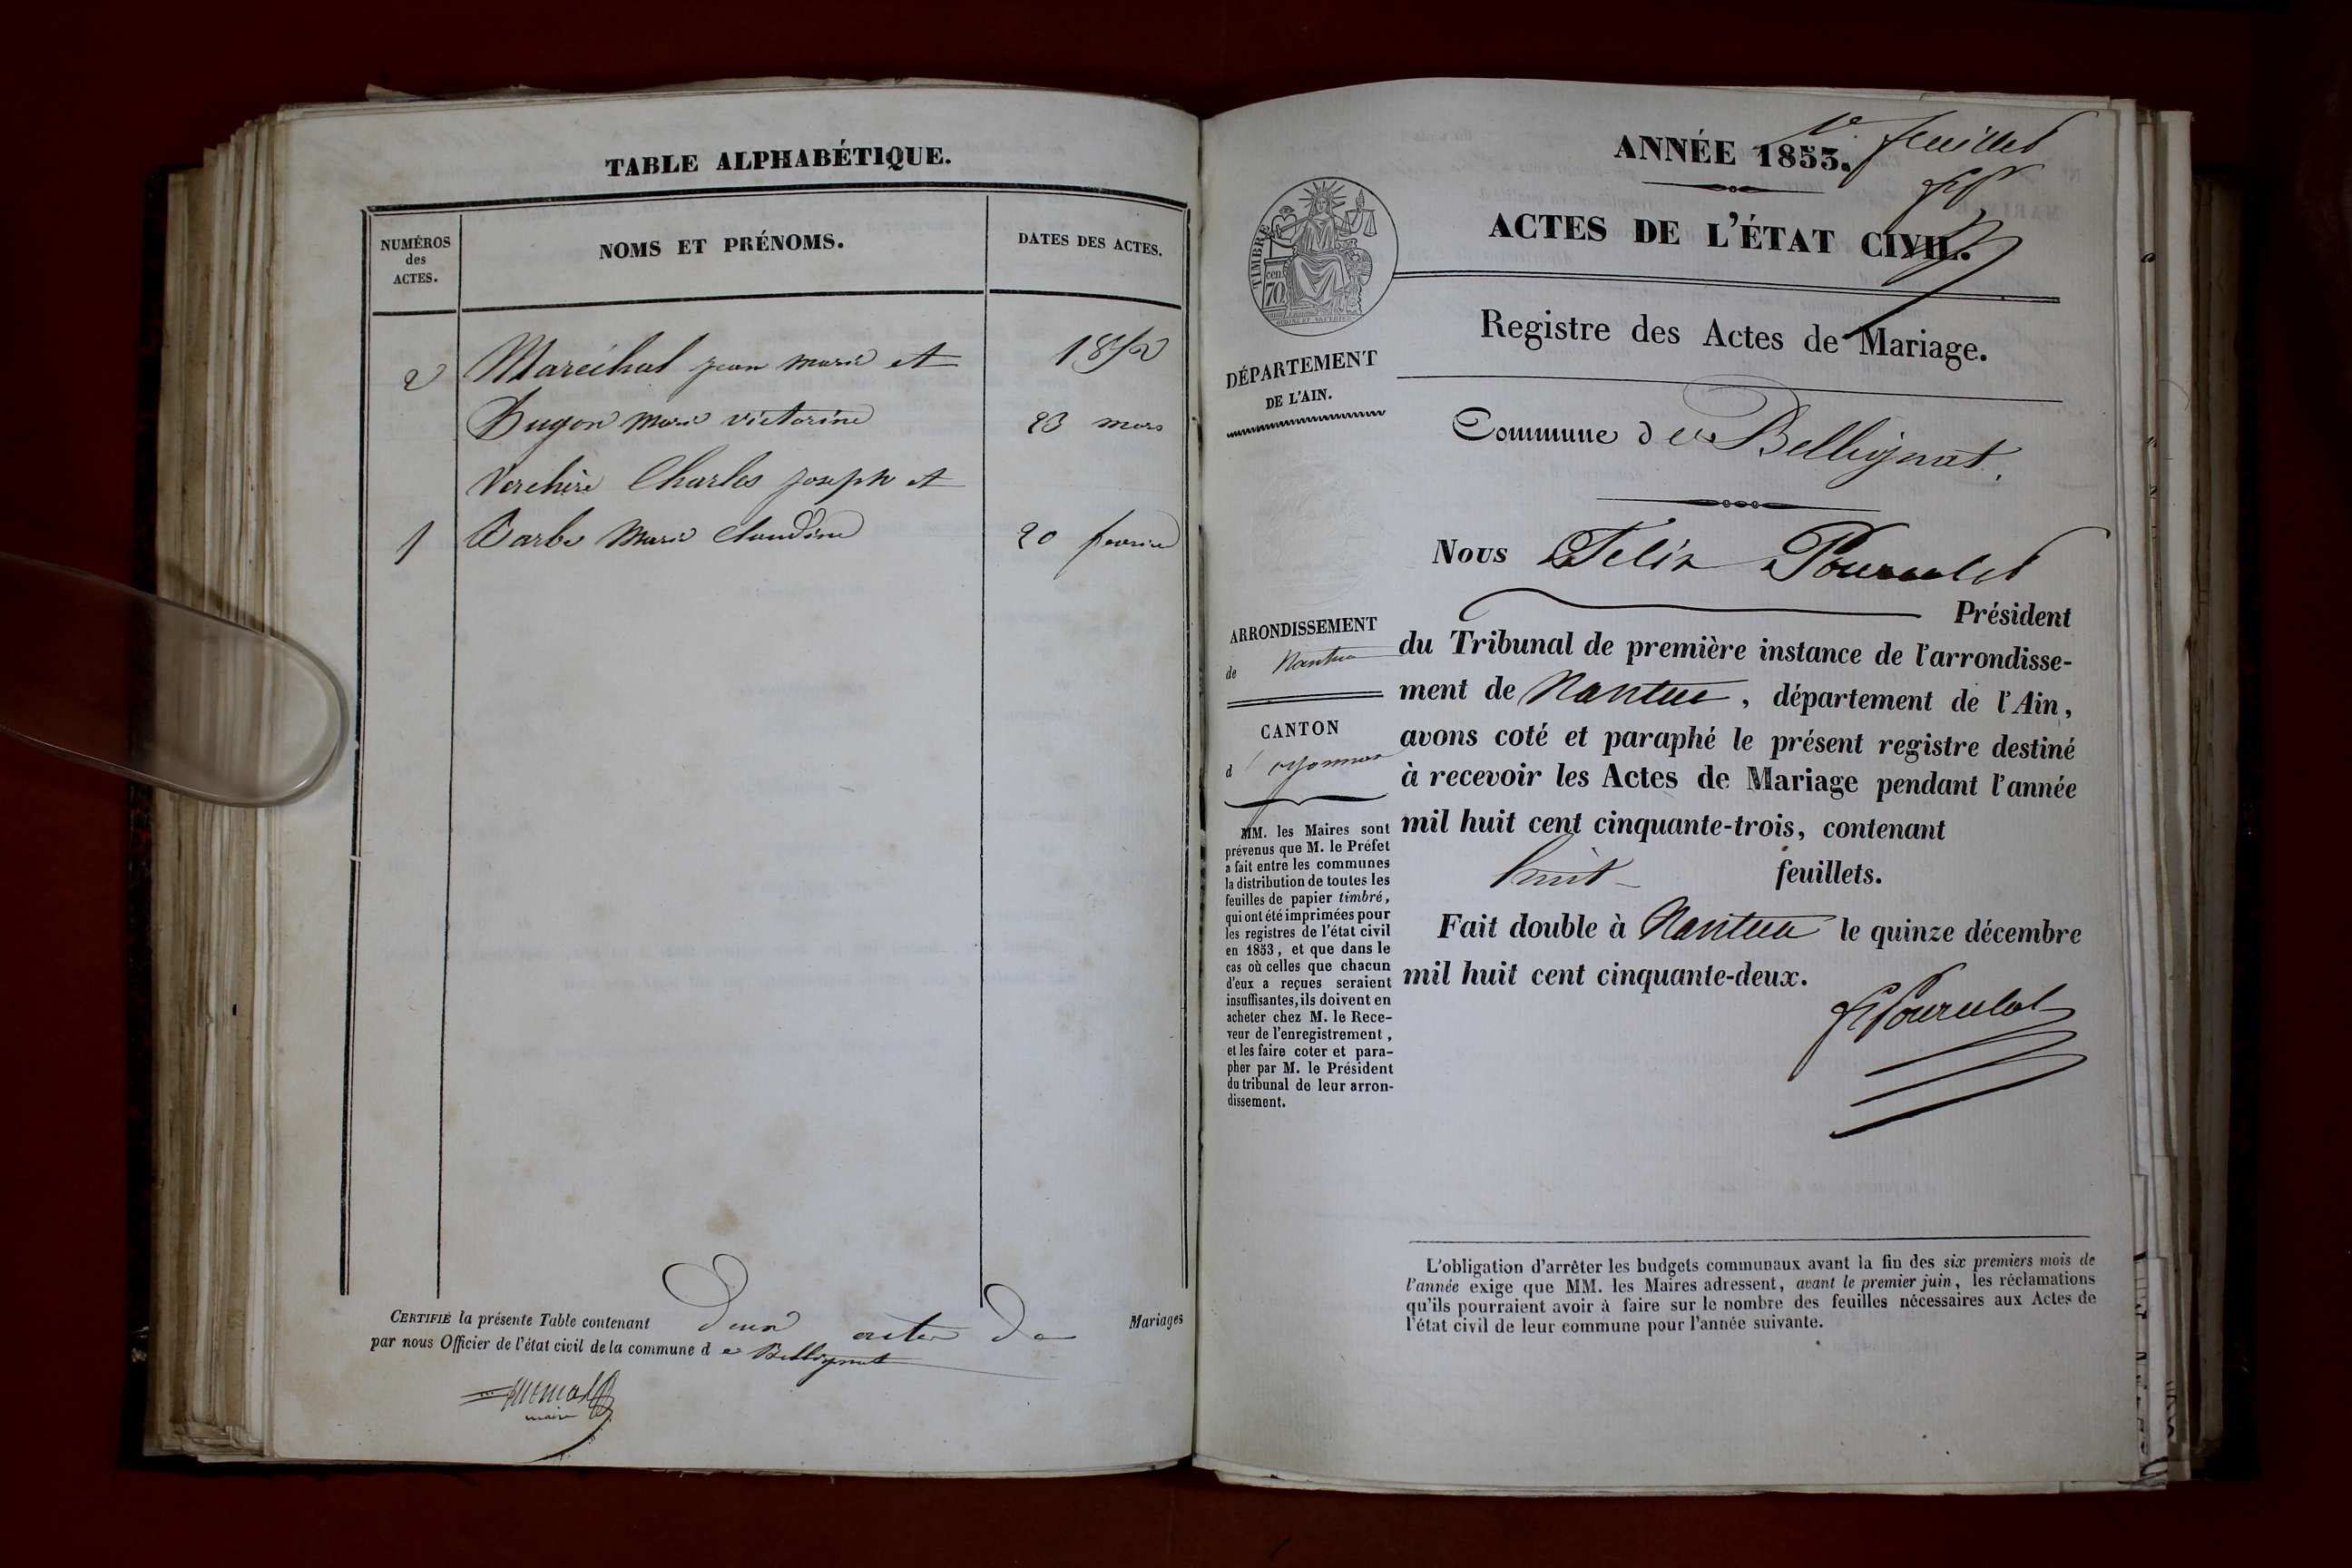 TABLE ALPHABÉTIQUE.
NUMÉROS
des
ACTES.
NOMS ET PRÉNOMS.
DATES DES ACTES.
2 Maréchal jean marie et 1852
Dugon marie victorine 23 mars
Verchère Charles joseph et
1 Barbe Marie Claudine 20 fevrier
CERTIFIÉ la présente Table contenant Deux actes de Mariages
par nous Officier de l'état civil de la commune de Bellignat
maire
1er feuillet
ANNÉE 1853.
ACTES DE L'ÉTAT CIVIL.
TIMBRE
70 cen
Registre des Actes de Mariage.
DÉPARTEMENT
DE L'AIN.
Commune de Bellignat.
Nous Félix
Président
ARRONDISSEMENT
de Nantua
CANTON
d'oyonnax
du Tribunal de première instance de l'arrondisse-
ment de Nantua, département de l'Ain,
avons coté et paraphé le présent registre destiné
à recevoir les Actes de Mariage pendant l'année
mil huit cent cinquante-trois, contenant
huit feuillets.
Fait double à Nantua le quinze décembre
mil huit cent cinquante-deux.
MM. les Maires sont
prévenus que M. le Préfet
a fait entre les communes
la distribution de toutes les
feuilles de papier timbré,
qui ont été imprimées pour
les registres de l'état civil
en 1853, et que dans le
cas où celles que chacun
d'eux a reçues seraient
insuffisantes, ils doivent en
acheter chez M. le Rece-
veur de l'enregistrement,
et les faire coter et para-
pher par M. le Président
du tribunal de leur arron-
dissement.
L'obligation d'arrêter les budgets communaux avant la fin des six premiers mois de
l'année exige que MM. les Maires adressent, avant le premier juin, les réclamations
qu'ils pourraient avoir à faire sur le nombre des feuilles nécessaires aux Actes de
l'état civil de leur commune pour l'année suivante.